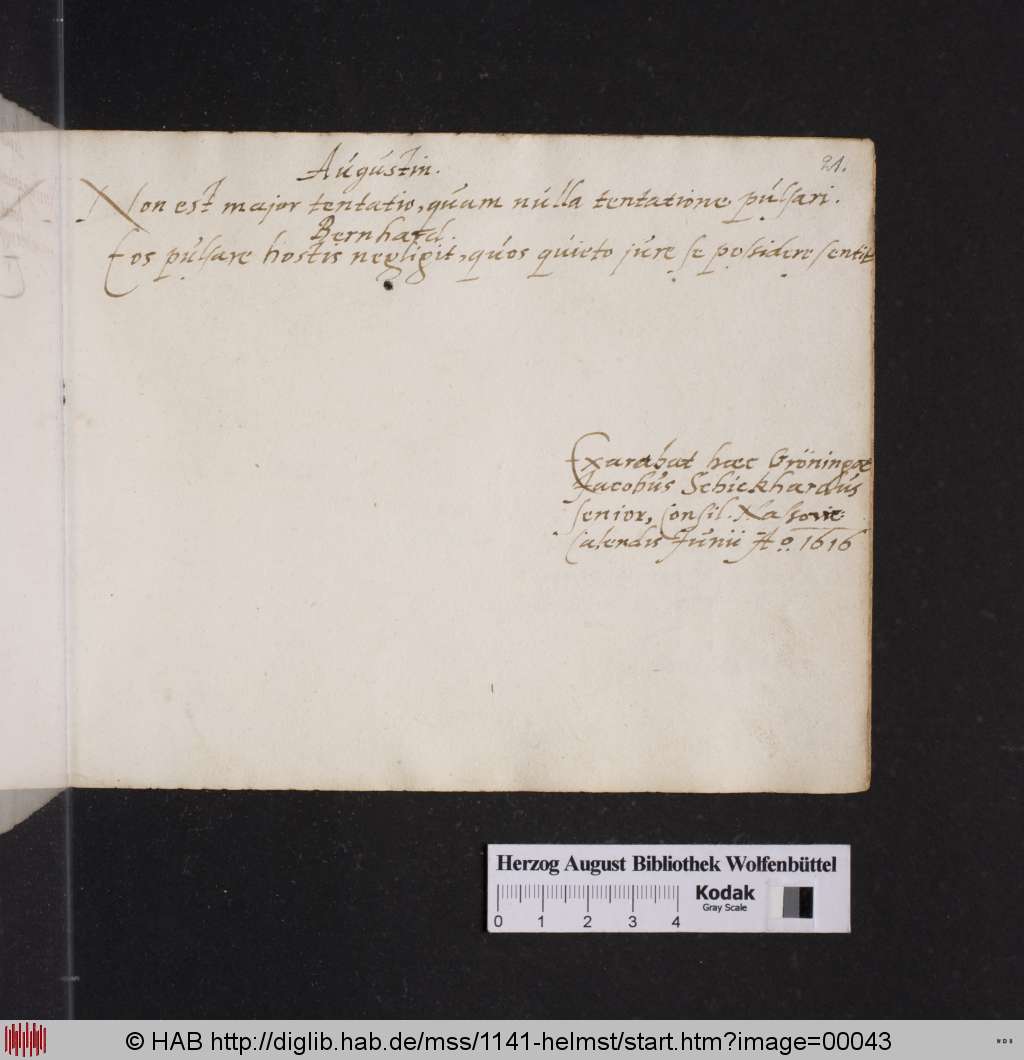 21.
Augustin.
Non est major tentatio, quam nulla tentatione pulsari.
Bernhard.
Eos pulsare hostis negligit, quos quieto jure se possidere sentit
Exarabat haec Gröningae
Jacobus Schickhardus
senior, Consil. Nassovic
Calendis Junii Ao. 1616
Herzog August Bibliothek Wolfenbüttel
Kodak
Gray Scale
0 1 2 3 4
© HAB http://diglib.hab.de/mss/1141-helmst/start.htm?image=00043